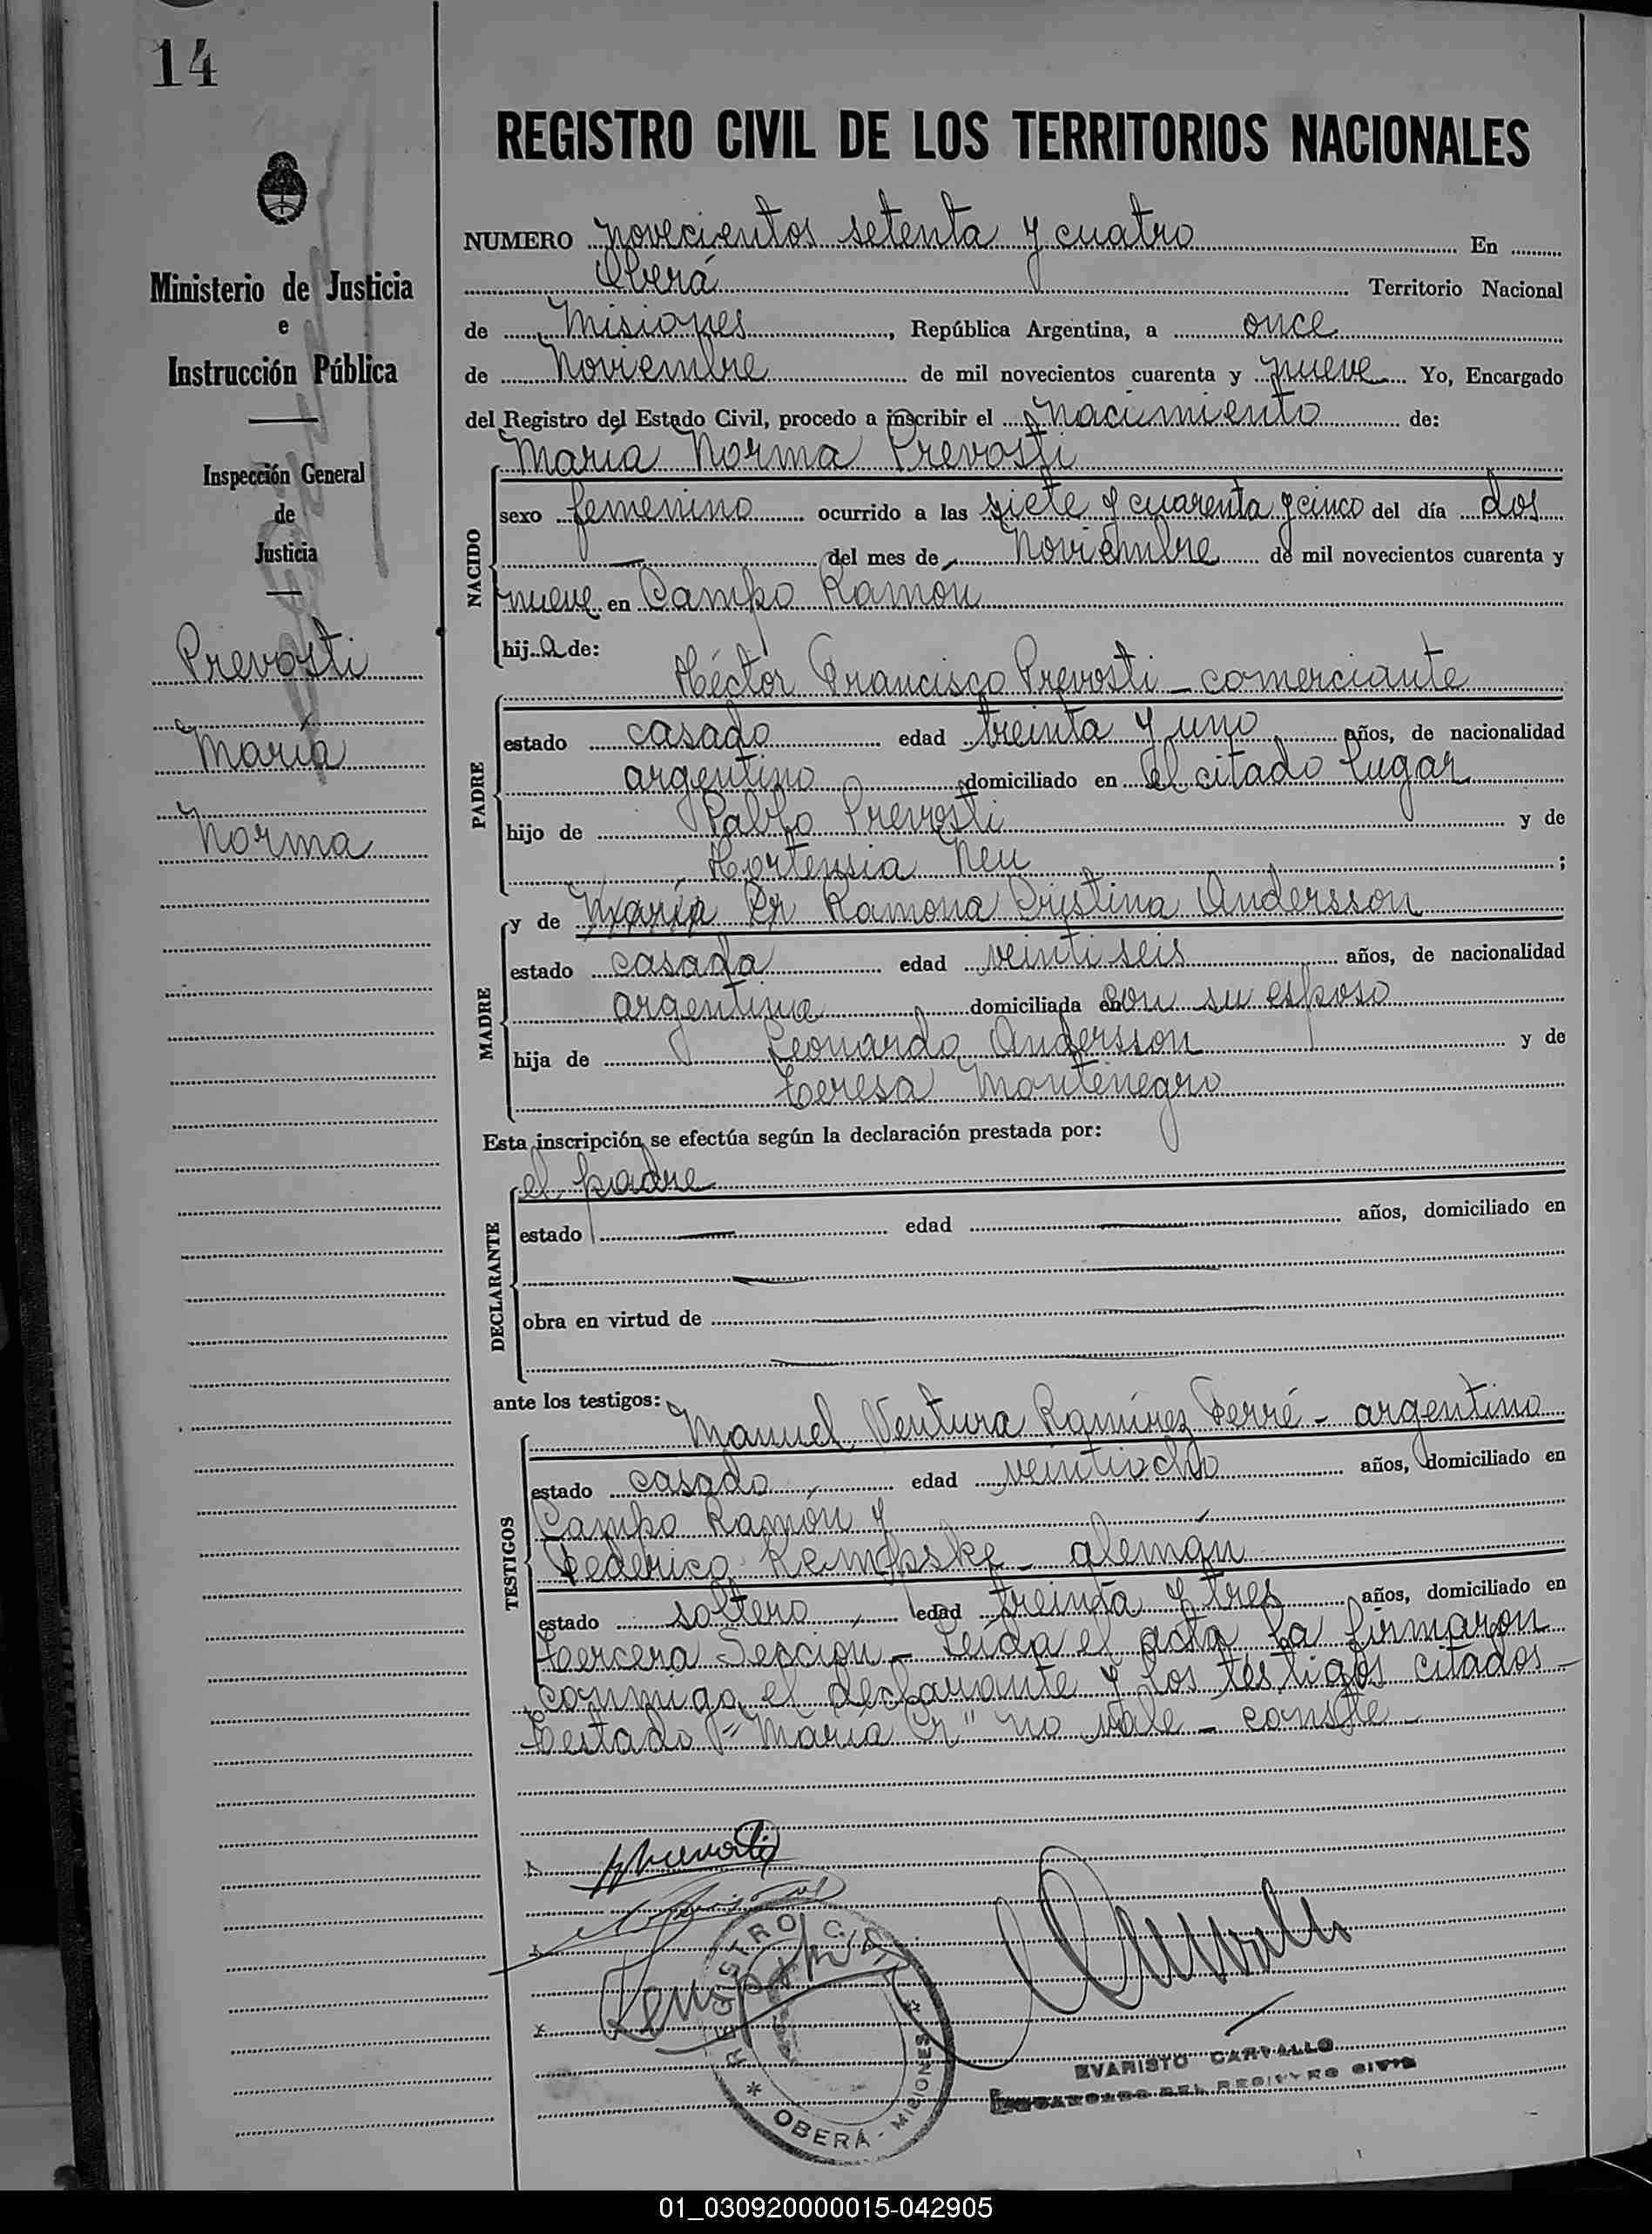 14
REGISTRO CIVIL DE LOS TERRITORIOS NACIONALES
Ministerio de Justicia
e
Instrucción Pública
Inspección General
de
Justicia
Prevosti
María
Norma
NUMERO novecientos setenta y cuatro En
Oberá Territorio Nacional
de Misiones, República Argentina, a once
de Noviembre de mil novecientos cuarenta y nueve Yo, Encargado
del Registro del Estado Civil, procedo a inscribir el nacimiento de:
NACIDO
María Norma Prevosti
sexo femenino ocurrido a las siete y cuarenta y cinco del día dos
del mes de Noviembre de mil novecientos cuarenta y
nueve en Campo Ramón
hija de:
PADRE
Héctor Francisco Prevosti - comerciante
estado casado edad treinta y uno años, de nacionalidad
argentino domiciliado en el citado lugar
hijo de Pablo Prevosti y de
Hortensia Neu ;
MADRE
y de María Cr Ramona Cristina Andersson
estado casada edad veintiseis años, de nacionalidad
argentina domiciliada en con su esposo
hija de Leonardo Andersson y de
Teresa Montenegro
Esta inscripción se efectúa según la declaración prestada por:
DECLARANTE
el padre
estado edad años, domiciliado en
obra en virtud de
ante los testigos:
TESTIGOS
Manuel Ventura Ramírez Ferré - argentino
estado casado, edad veintiocho años, domiciliado en
Campo Ramón y
Federico Kempske - alemán
estado soltero, edad treinta y tres años, domiciliado en
tercera Sección - Leída el acta la firmaron
conmigo el declarante y los testigos citados -
Testado "María Cr" no vale - conste -
REGISTRO CIVIL
OBERÁ - MISIONES
EVARISTO CARVALLO
ENCARGADO DEL REGISTRO CIVIL
01_030920000015-042905